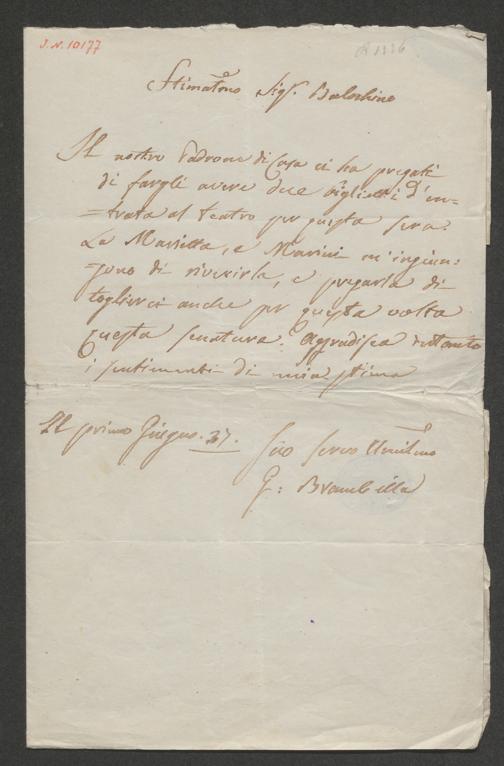 J.N. 10177
Stimatmo Sigr. Balochino
Il nostro Padrone di Casa ci ha pregati
di fargli avere due biglietti d'en-
=trata al teatro per questa sera.
La Marietta, e Marini m'ingiun=
gono di riverirla, e pregarla di
toglierci anche per questa volta
questa seccatura. Aggradisca intanto
i sentimenti di mia stima
Il primo Giugno. 37.
Suo servo Umilmo
G: Brambilla